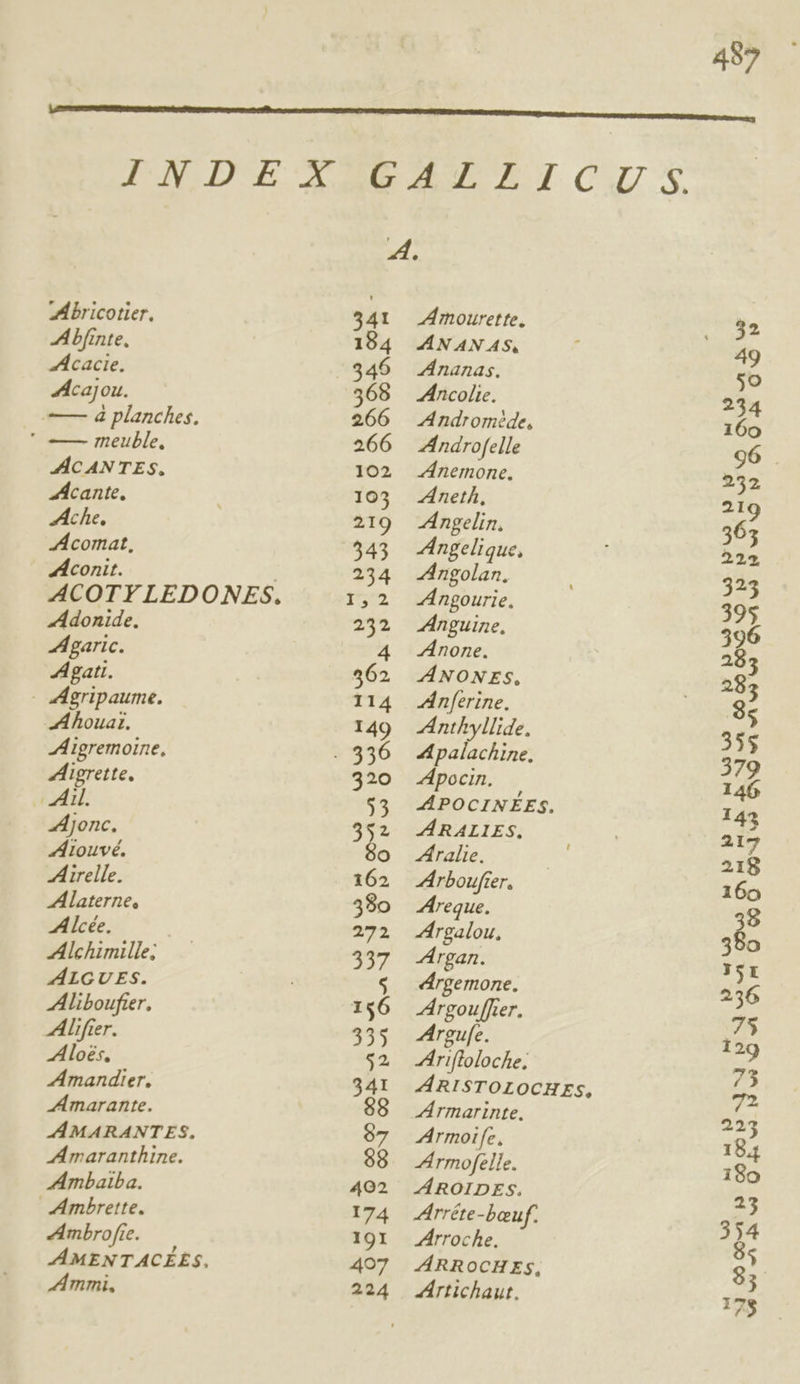 487
INDEX GALLICUS.
A.
Abricotier. 341
Abſinte. 184
Acacie. 346
Acajou. 368
—— à planches. 266
—— meuble. 266
ACANTES. 102
Acante. 103
Ache. 219
Acomat. 343
Aconit. 234
ACOTYLEDONES. 1, 2
Adonide. 232
Agaric. 4
Agati. 362
Agripaume. 114
Ahouaï. 149
Aigremoine. 336
Aigrette. 320
Ail. 53
Ajonc. 352
Aiouvé. 80
Airelle. 162
Alaterne. 380
Alcée. 272
Alchimille. 337
ALGUES. 5
Aliboufier. 156
Aliſier. 335
Aloës. 52
Amandier. 341
Amarante. 88
AMARANTES. 87
Amaranthine. 88
Ambaïba. 402
Ambrette. 174
Ambroſie. 191
AMENTACÉES. 407
Ammi. 224
Amourette. 32
ANANAS. 49
Ananas. 50
Ancolie. 234
Andromède. 160
Androſelle 96
Anemone. 232
Aneth. 219
Angelin. 363
Angelique. 222
Angolan. 323
Angourie. 395
Anguine. 396
Anone. 283
ANONES. 283
Anſerine. 85
Anthyllide. 355
Apalachine. 379
Apocin. 146
APOCINÉES. 143
ARALIES. 217
Aralie. 218
Arbouſier. 160
Areque. 38
Argalou. 380
Argan. 151
Argemone. 236
Argouſſier. 75
Arguſe. 129
Ariſtoloche. 73
ARISTOLOCHES. 72
Armarinte. 223
Armoiſe. 184
Armoſelle. 180
AROIDES. 23
Arréte-bœuf. 354
Arroche. 85
ARROCHES. 83
Artichaut. 173